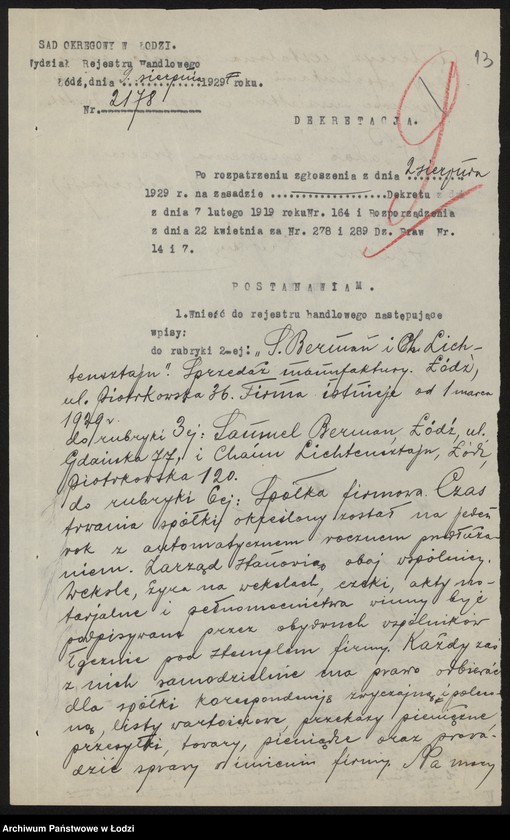 13
SAD OKRĘGOWY W ŁODZI.
Wydział Rejestru Handlowego
Łódź, dnia 9 sierpnia 1929 roku.
Nr. 2178
DEKRETACJA.
Po rozpatrzeniu zgłoszenia z dnia 2 sierpnia
1929 r. na zasadzie .................Dekretu
z dnia 7 lutego 1919 roku Nr. 164 i Rozporządzenia
z dnia 22 kwietnia za Nr. 278 i 289 Dz. Praw Nr.
14 i 7.
POSTANAWIAM.
1. Wnieść do rejestru handlowego następujące
wpisy:
do rubryki 2-ej: „S. Berman i Ch. Lich-
tensztajn". Sprzedaż manufaktury. Łódź,
ul. Piotrkowska 36. Firma istnieje od 1 marca
1929 r.
do rubryki 3ej: Saumel Berman, Łódź, ul.
Gdańska 77, i Chaim Lichtensztajn, Łódź,
Piotrkowska 120.
do rubryki 6ej: Spółka firmowa. Czas
trwania spółki określony został na jeden
rok z automatycznem rocznem przedłuża-
niem. Zarząd stanowią obaj wspólnicy.
Weksle, żyra na wekslach, czeki, akty no-
tarjalne i pełnomocnictwa winny być
podpisywane przez obydwuch wspólników
łącznie pod stemplem firmy. Każdy zaś
z nich samodzielnie ma prawo odbierać
dla spółki korespondencję zwyczajną i poleco-
ną, listy wartościowe, przekazy pieniężne,
przesyłki, towary, pieniądze oraz prowa-
dzić sprawy w imieniu firmy. Na mocy
Archiwum Państwowe w Łodzi